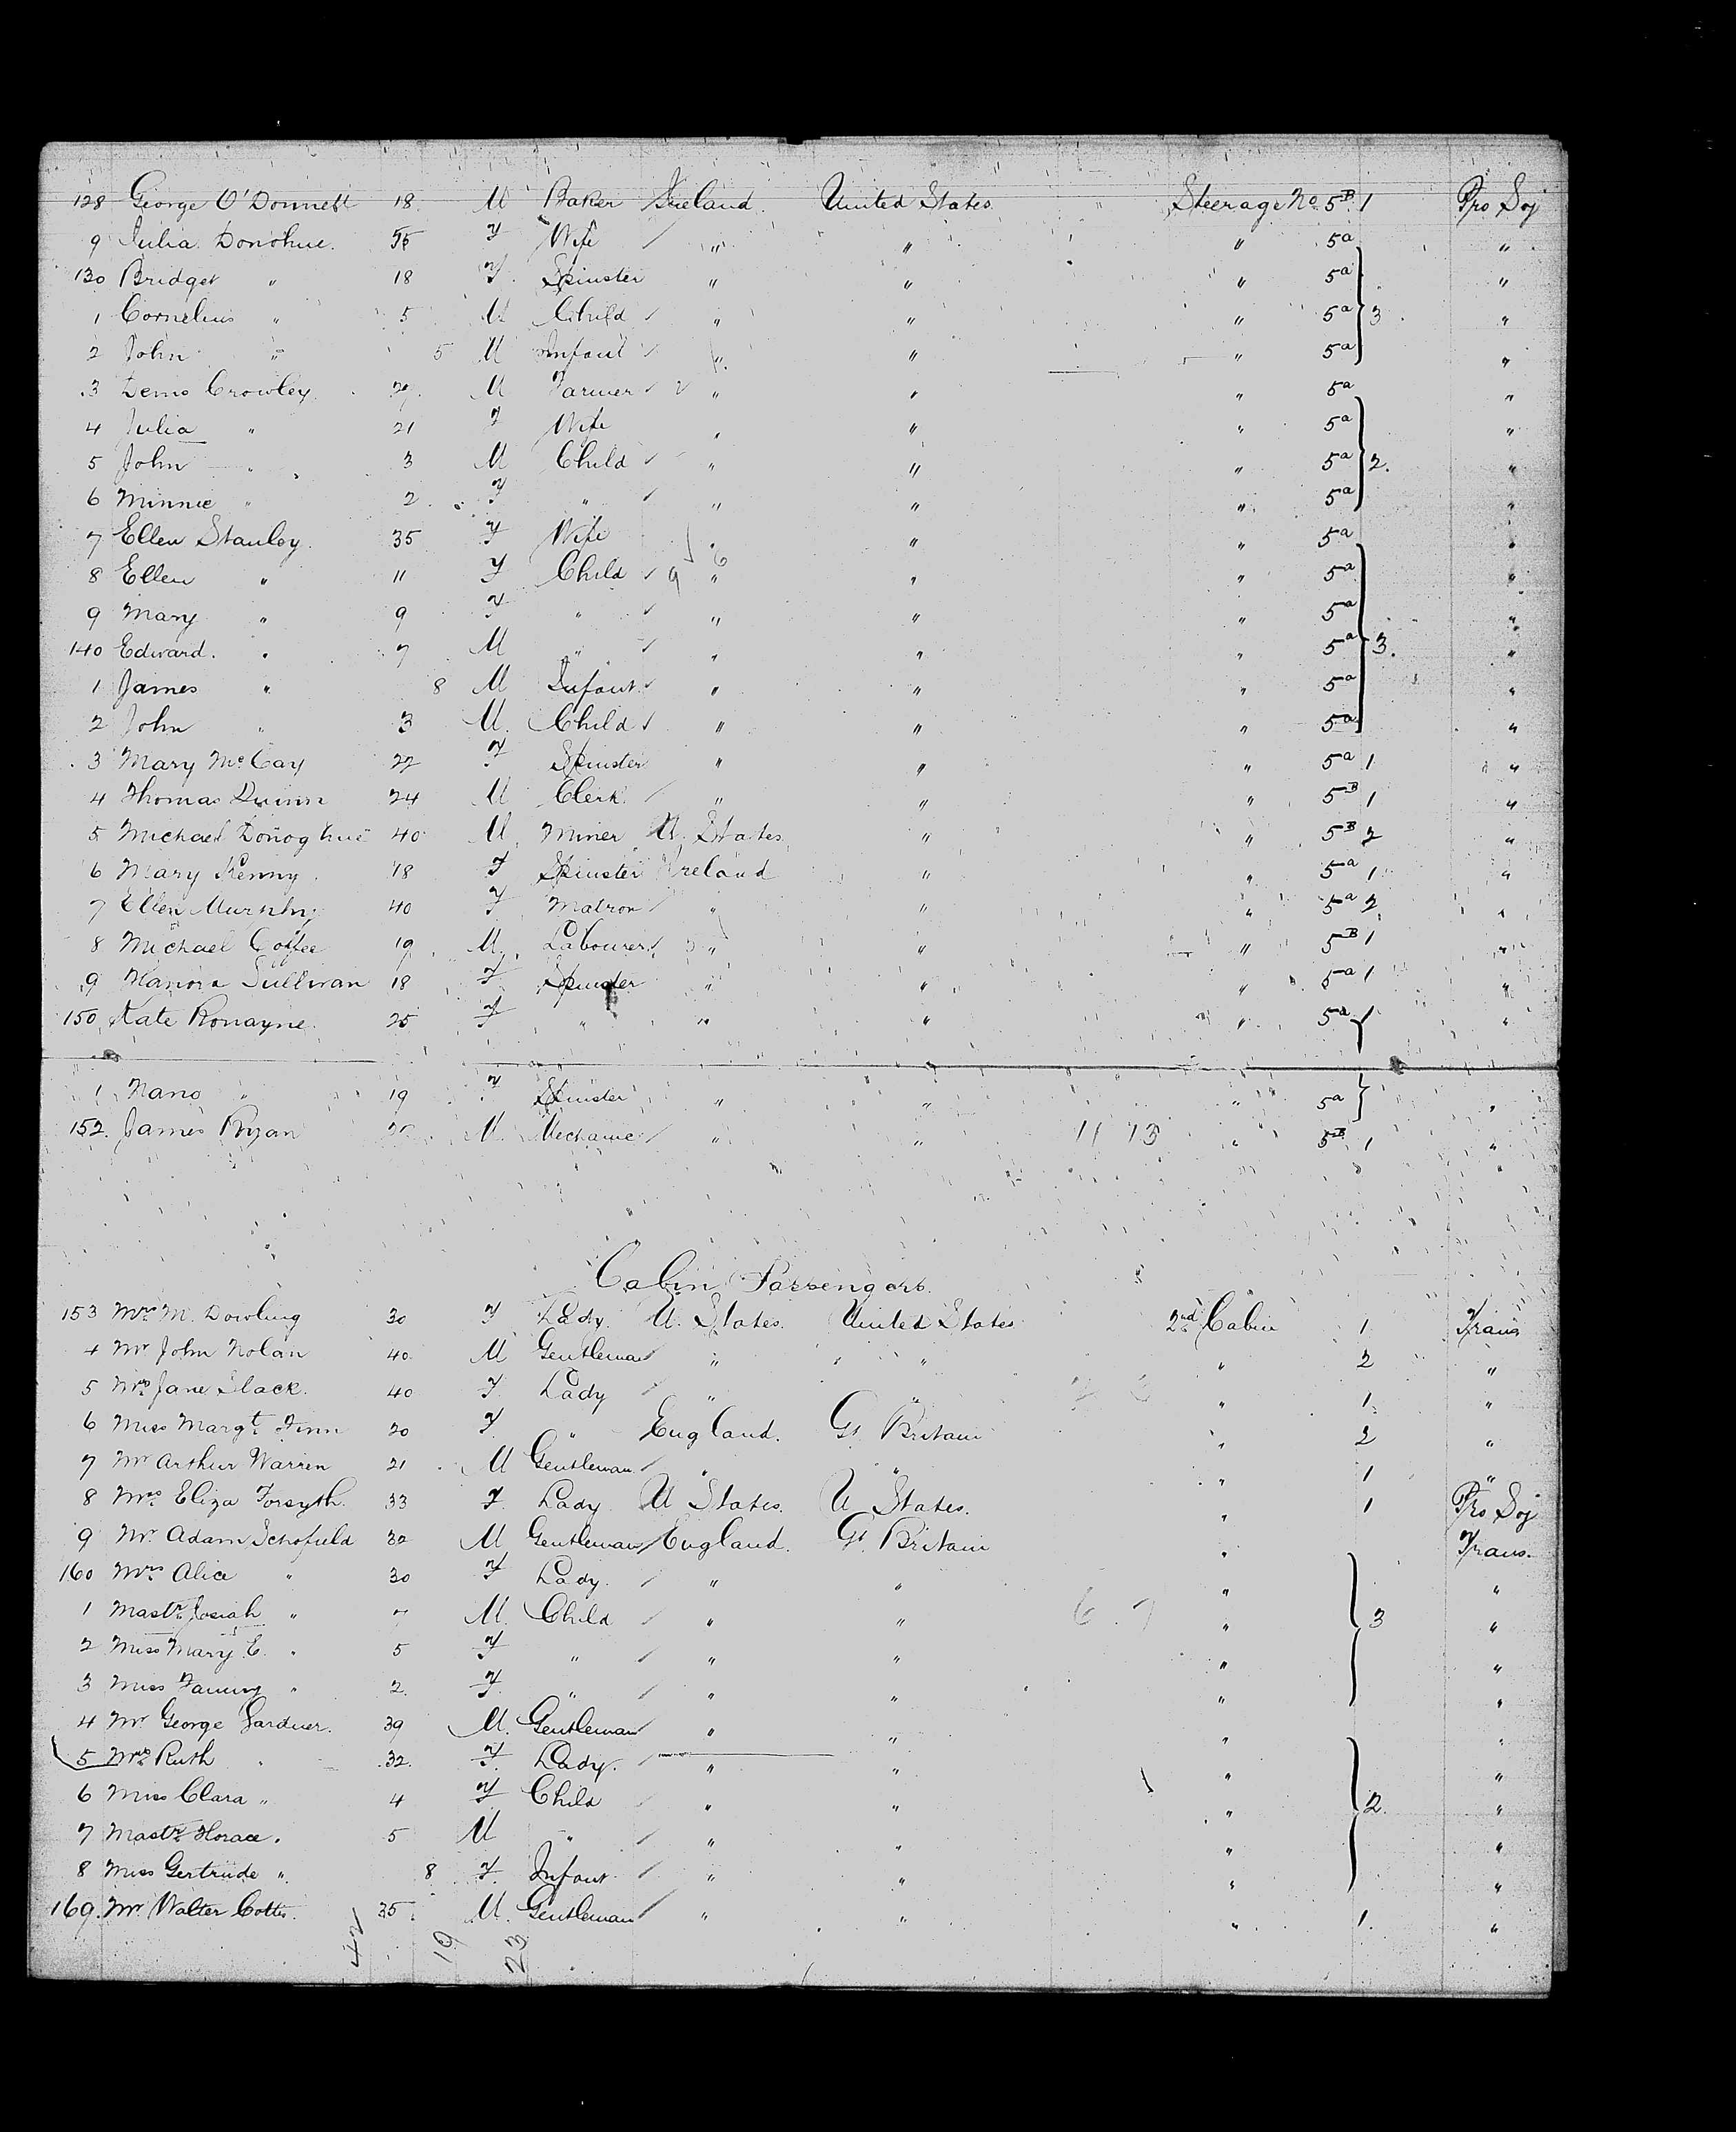 128 George O'Donnell 18 M Baker Ireland United States Steerage No 5B 1 Pro Soj
9 Julia Donohue. F Wife " " " 5a "
130 Bridget " 18 F Spinster " " " 5a "
1 Cornelius " 5 M Child " " " 5a 3 "
2 John " 5 M Infant " " " 5a "
3 Denis Crowley M Farmer " " " 5a "
4 Julia " 21 F Wife " " " 5a "
5 John " 3 M Child " " " 5a 2. "
6 Minnie " 2 F " " " " 5a "
7 Ellen Stanley. 35 F Wife " " " 5a "
8 Ellen " 11 F Child " " " 5a "
9 Mary " 9 F " " " " 5a "
140 Edward. " 7 M " " " " 5a 3. "
1 James " 8 M Infant " " " 5a "
2 John " 3 M. Child " " " 5a "
3 Mary McCay 22 F Spinster " " " 5a 1 "
4 Thomas Quinn 24 M Clerk " " " 5B 1 "
5 Michael Donoghue 40 M Miner U. States " " 5B 2 "
6 Mary Kenny 18 F Spinster Ireland " " 5a 1 "
7 Ellen Murphy 40 F Matron " " " 5a 2 "
8 Michael Coffee 19 M. Labourer " " " 5B 1 "
9 Hanora Sullivan 18 F Spinster " " " 5a 1 "
150 Kate Ronayne. 25 F " " " " 5a "
1 Nano " 19 F Spinster " " " 5a "
152. James Ryan M. Mechanic " " 11 13 " 5B 1 "
Cabin Passengers.
153 Mrs M. Dowling 30 F Lady U. States. United States 2nd Cabin 1 Trans
4 Mr John Nolan 40 M Gentleman " " " 2 "
5 Mrs Jane Slack. 40 F. Lady " " 2 3 " 1. "
6 Miss Margt. Finn 20 F. " England. Gt. Britain " 2 "
7 Mr Arthur Warren 21 M Gentleman " " " 1 "
8 Mrs. Eliza Forsyth. 33 F. Lady U States. U States. " 1 Pro Soj
9 Mr. Adam Schofield 32 M Gentleman England. Gt. Britain " Trans.
160 Mrs Alice " 30 F Lady. " " " "
1 Mastr. Josiah " 7 M. Child " " 6 7 " 3 "
2 Miss Mary E. " 5 F " " " " "
3 Miss Fanny " 2. F. " " " " "
4 Mr George Gardner. 39 M. Gentleman " " " "
5 Mrs Ruth " 32. F. Lady. " " " "
6 Miss Clara " 4 F Child " " " 2. "
7 Mastr. Horace. " 5 M " " " " "
8 Miss Gertrude " 8 F. Infant " " " "
169. Mr Walter 35 M. Gentleman " " " 1. "
42 19 23